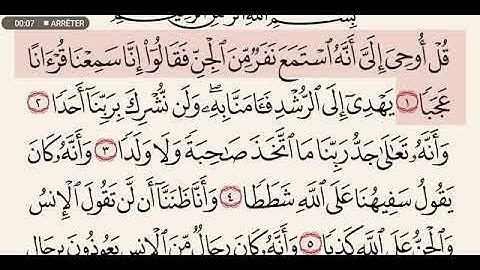 00:07 ■ ARRÊTER
بِسْمِ ٱللَّهِ ٱلرَّحْمَٰنِ ٱلرَّحِيمِ
قُلْ أُوحِىَ إِلَىَّ أَنَّهُ ٱسْتَمَعَ نَفَرٌ مِّنَ ٱلْجِنِّ فَقَالُوٓا۟ إِنَّا سَمِعْنَا قُرْءَانًا
عَجَبًا ١ يَهْدِىٓ إِلَى ٱلرُّشْدِ فَـَٔامَنَّا بِهِۦ ۖ وَلَن نُّشْرِكَ بِرَبِّنَآ أَحَدًا ٢
وَأَنَّهُۥ تَعَٰلَىٰ جَدُّ رَبِّنَا مَا ٱتَّخَذَ صَٰحِبَةً وَلَا وَلَدًا ٣ وَأَنَّهُۥ كَانَ
يَقُولُ سَفِيهُنَا عَلَى ٱللَّهِ شَطَطًا ٤ وَأَنَّا ظَنَنَّآ أَن لَّن تَقُولَ ٱلْإِنسُ
وَٱلْجِنُّ عَلَى ٱللَّهِ كَذِبًا ٥ وَأَنَّهُۥ كَانَ رِجَالٌ مِّنَ ٱلْإِنسِ يَعُوذُونَ بِرِجَالٍ